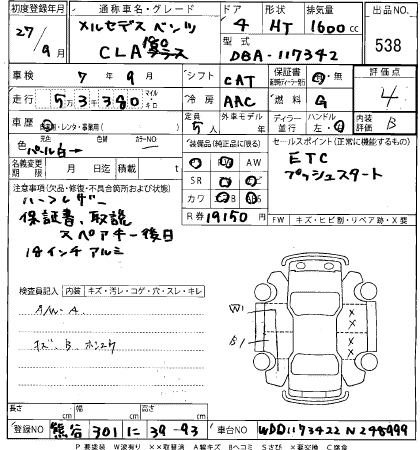 初度登録年月 通称車名・グレード ドア 形状 排気量 出品NO.
27/9月 メルセデス ベンツ 4 HT 1600 cc 538
CLA180 型式 DBA-117342
車検 7年9月 シフト CAT 保証書 有・無 評価点 4
走行 53380 マイル キロ 冷房 AAC 燃料 G
車歴 自家用・レンタ・事業用( ) 定員 5人 外車モデル ディーラー 並行 ハンドル 左・右 内装評価 B
色 元色 パール白→ 色替 カラーNO 装備品(純正品に限る) セールスポイント(正常に機能するもの)
名義変更期限 月 日 積載 t AW ETC
SR プッシュスタート
注意事項(欠品・修復・不具合箇所および状態) カワ ABS
ハーフレザー R券 19150 FW キズ・ヒビ割・リペア跡・X要
保証書、取説
スペアキー後日
18インチアルミ
検査員記入 内装 キズ・汚レ・コゲ・穴・スレ・キレ
A/W-A W1
キズ B ホンスウ B1
XX
XX
長さ cm 幅 cm 高さ cm
登録NO 熊谷 301 に 39-93 車台NO WDD1173422N248999
P 要塗装 W波有り XX取替済 A線キズ Bヘコミ Sさび X要交換 C腐食